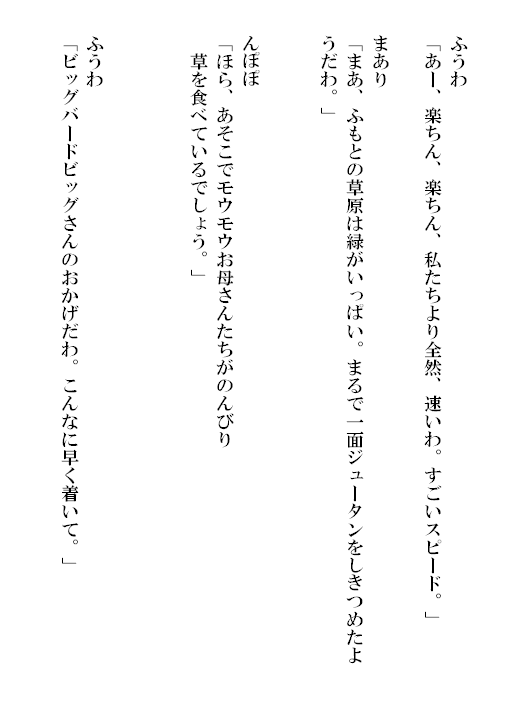 ふうわ
「あー、楽ちん、楽ちん、私たちより全然、速いわ。すごいスピード。」
まあり
「まあ、ふもとの草原は緑がいっぱい。まるで一面ジュータンをしきつめたよ
うだわ。」
んぽぽ
「ほら、あそこでモウモウお母さんたちがのんびり
草を食べているでしょう。」
ふうわ
「ビッグバードビッグさんのおかげだわ。こんなに早く着いて。」